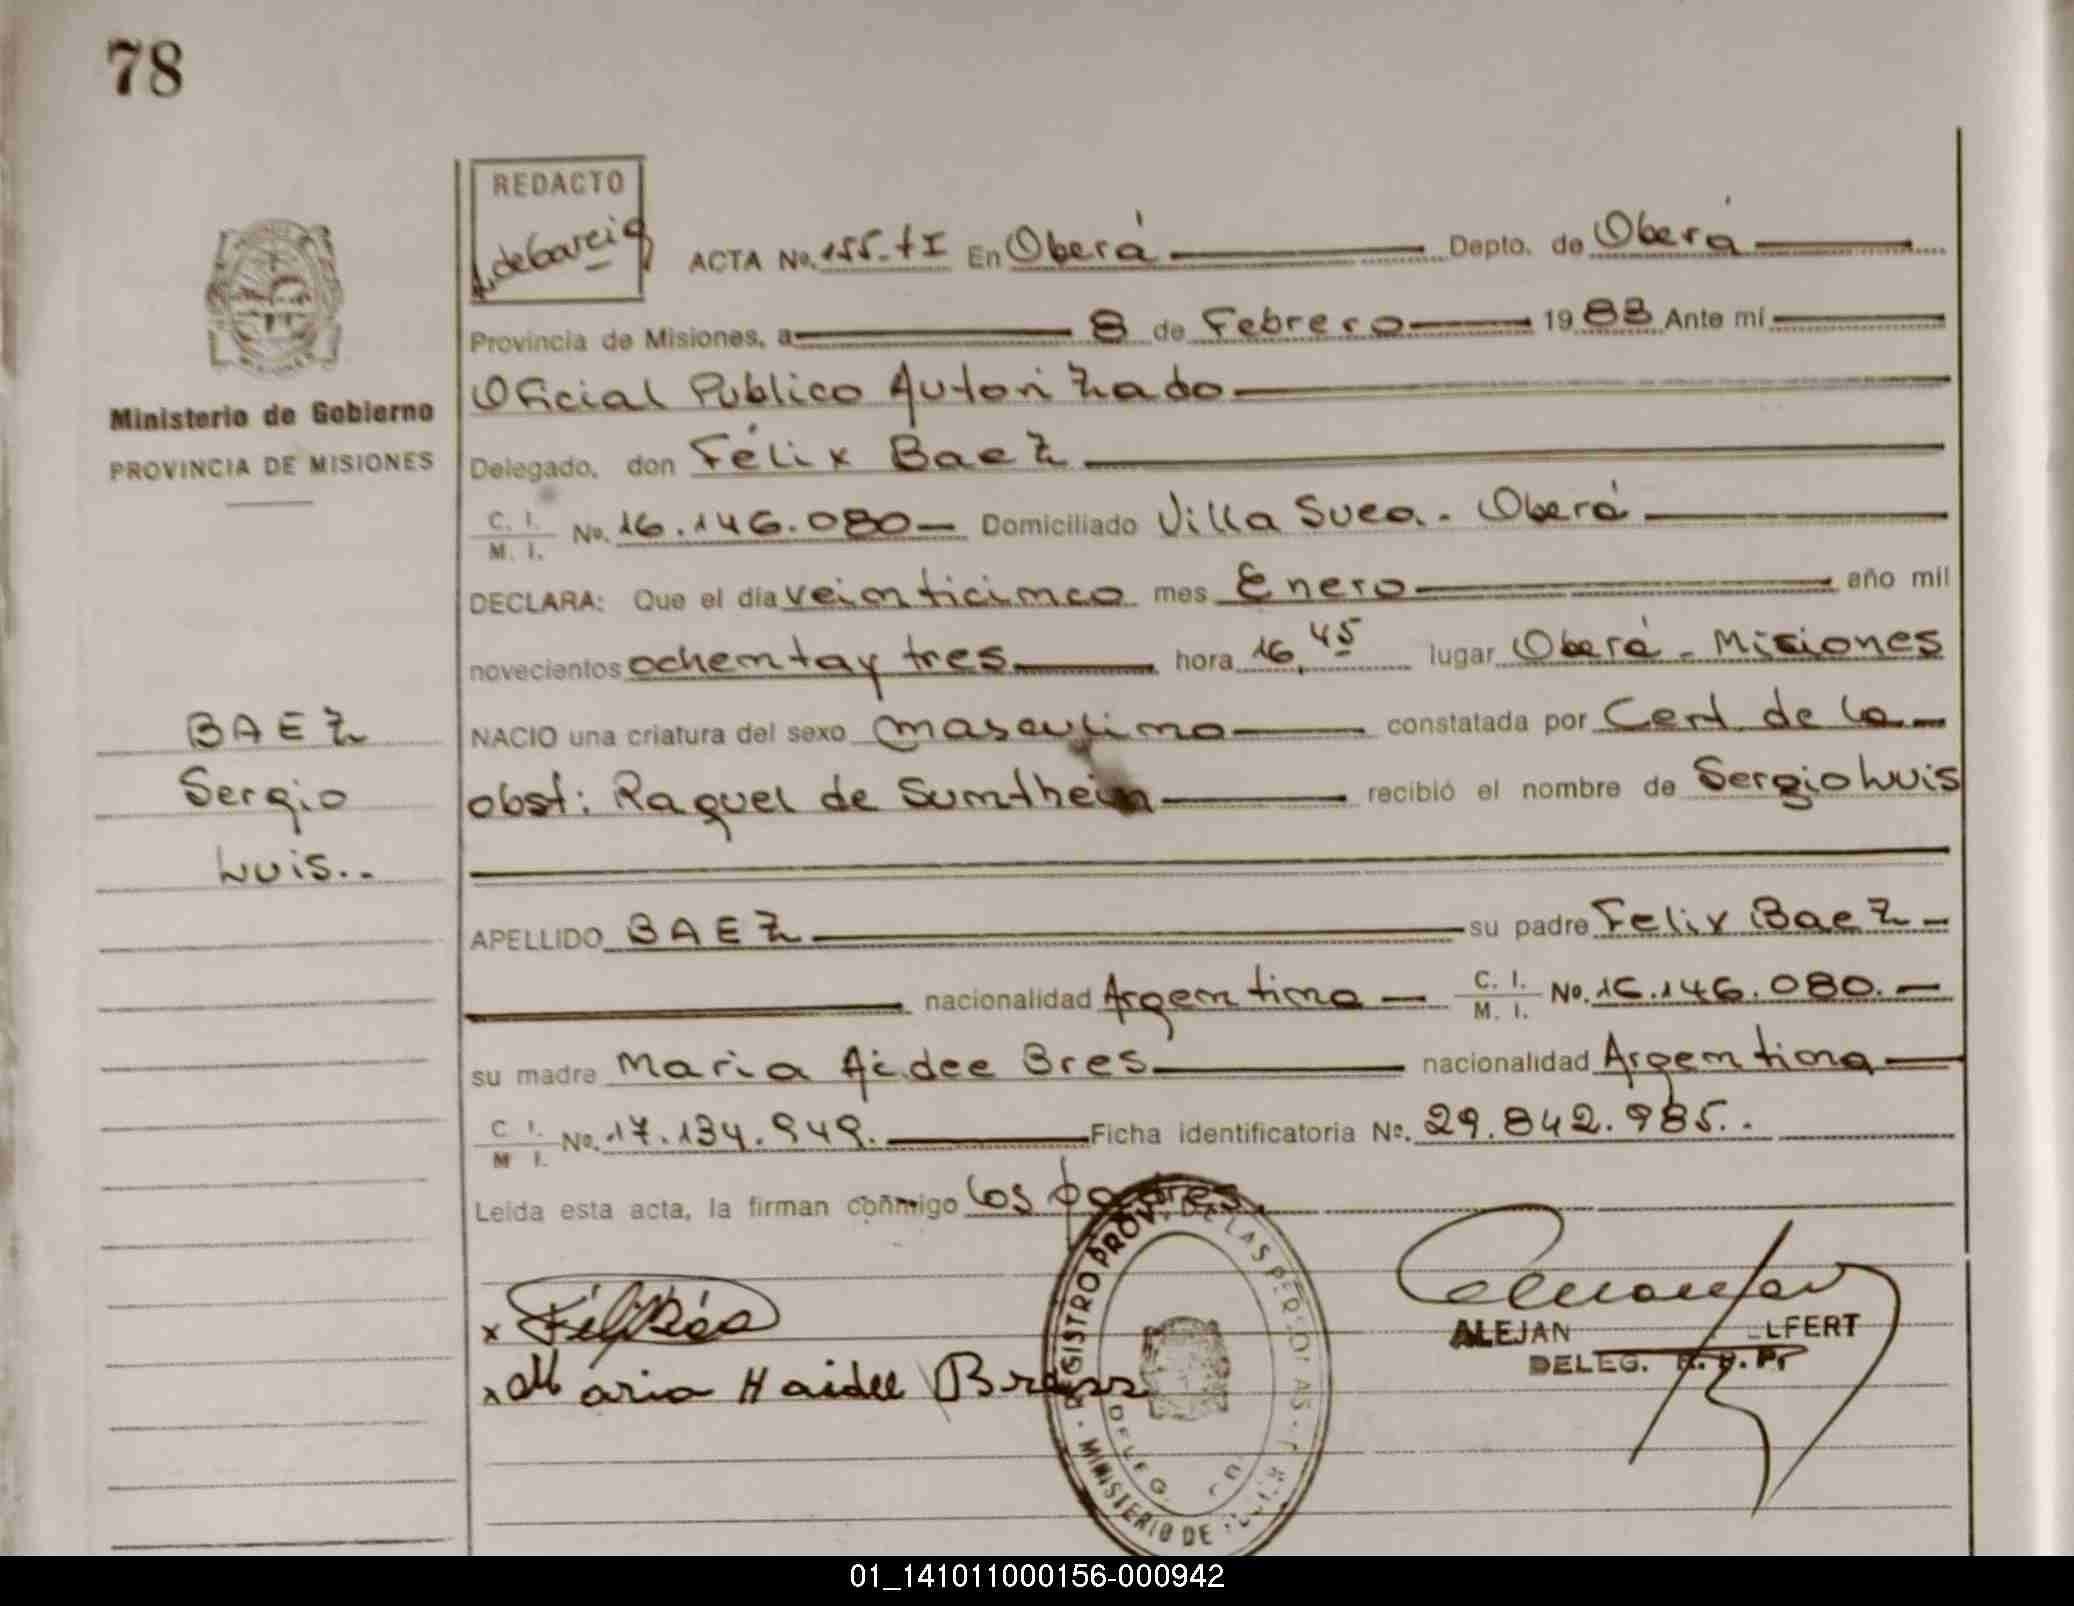 78
REDACTO
ACTA No. 155-tI En Oberá Depto. de Oberá
Provincia de Misiones, a 8 de Febrero 1983 Ante mí
Oficial Publico Autorizado
Ministerio de Gobierno
PROVINCIA DE MISIONES
Delegado, don Félix Baez
C. I. / M. I. No. 16.146.080 Domiciliado Villa Suea. - Oberá
DECLARA: Que el día veinticinco mes Enero año mil
novecientos ochenta y tres hora 16,45 lugar Oberá - Misiones
NACIO una criatura del sexo masculino constatada por Cert de la
obst: Raquel de Sumthein recibió el nombre de Sergio Luis
BAEZ
Sergio
Luis..
APELLIDO BAEZ su padre Felix Baez
nacionalidad Argentina C. I. / M. I. No. 16.146.080.
su madre Maria Aidee Bres nacionalidad Argentina
C. I. / M. I. No. 17.134.949. Ficha identificatoria No. 29.842.985..
Leída esta acta, la firman conmigo los padres.
x
x Maria Haidee Bress
REGISTRO PROV. DE LAS PERSONAS
MINISTERIO DE
DELEG.
ALEJAN LFERT
DELEG. R. P. P.
01_141011000156-000942